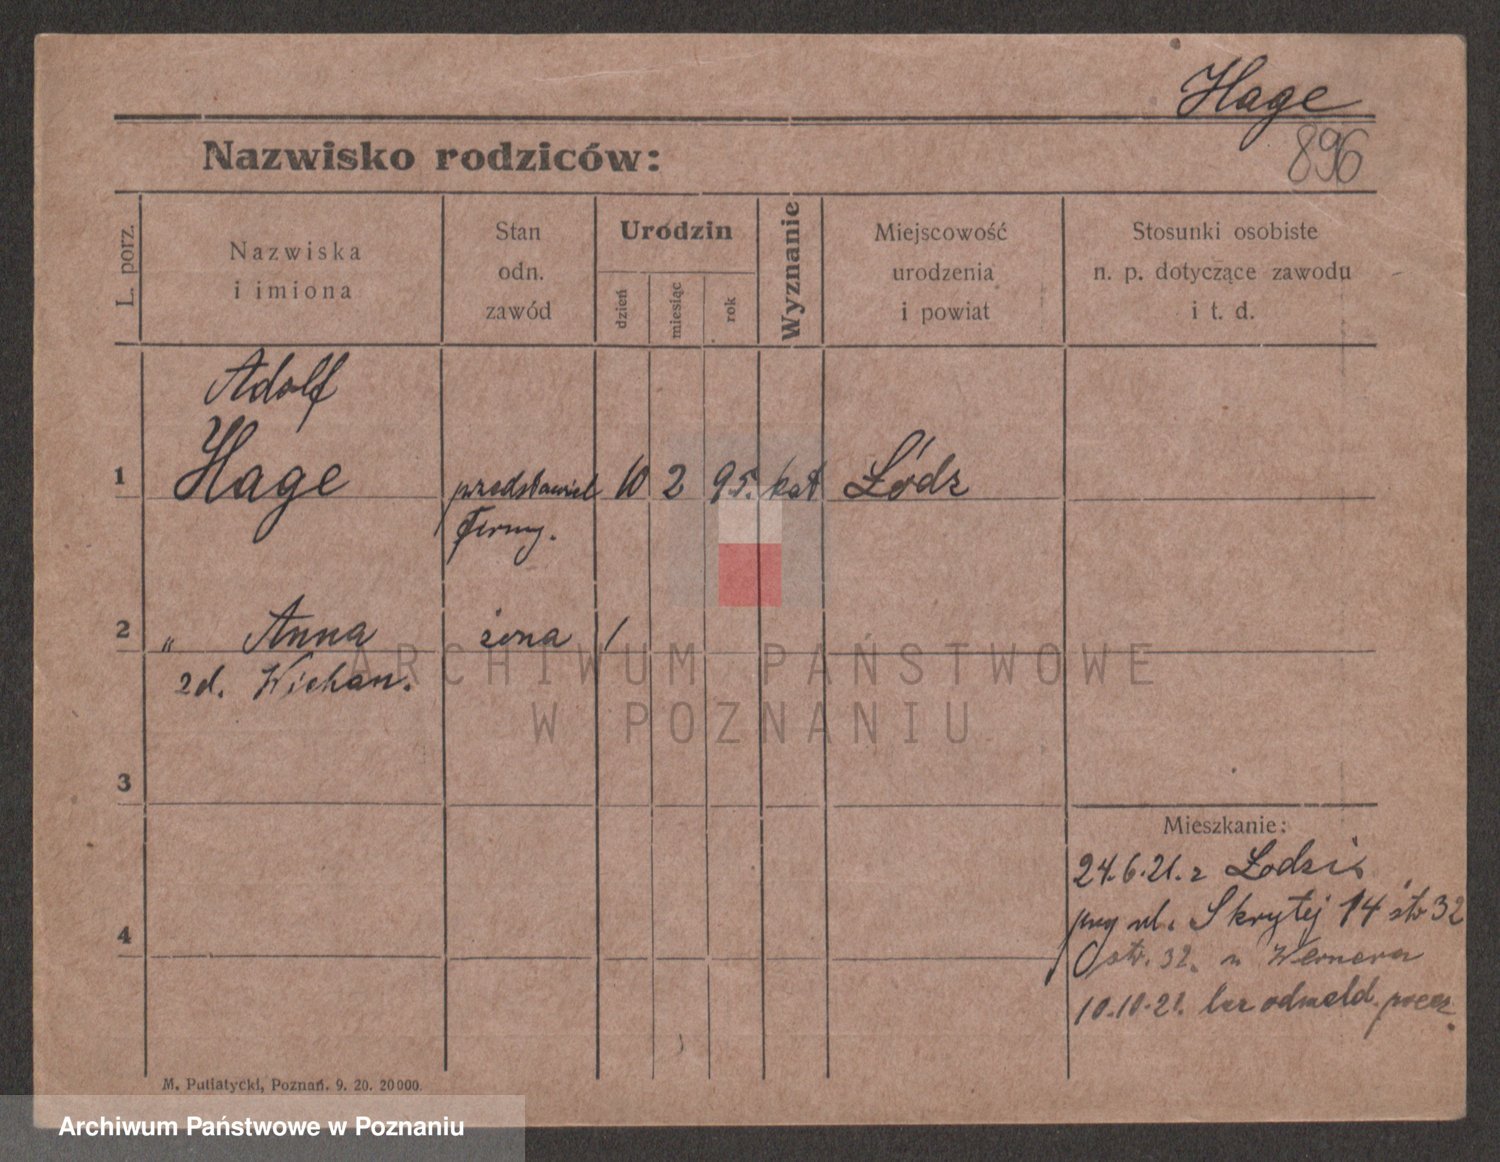 Hage
896
Nazwisko rodziców:
L. porz.
Nazwiska
i imiona
Stan
odn.
zawód
Urodzin
dzień
miesiąc
rok
Wyznanie
Miejscowość
urodzenia
i powiat
Stosunki osobiste
n. p. dotyczące zawodu
i t. d.
Adolf
1 Hage przedstawiciel 10 2 95. kat Łódz
Firmy.
2 " Anna żona /
zd. Wichan.
ARCHIWUM PAŃSTWOWE
W POZNANIU
3
Mieszkanie:
24.6.21. z Łodzi
ul. Skrytej 14 str 32
4
str. 32. u Wernera
10.10.21. bez odmeld.
M. Putiatycki, Poznań. 9. 20. 20000.
Archiwum Państwowe w Poznaniu